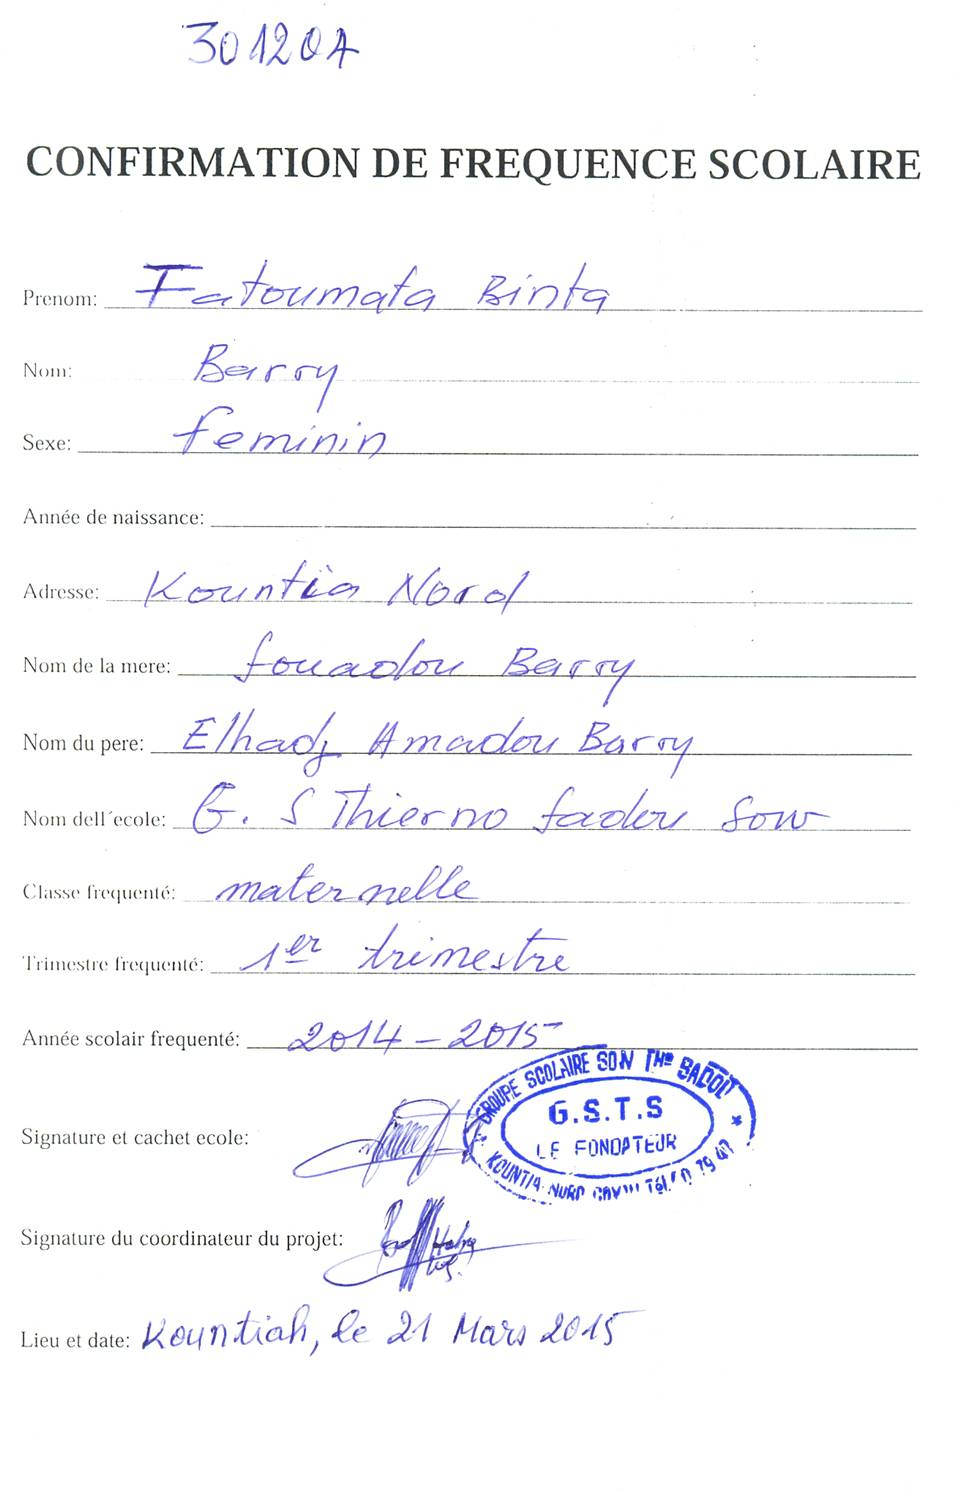 30120A
CONFIRMATION DE FREQUENCE SCOLAIRE
Prenom: Fatoumata Binta
Nom: Barry
Sexe: feminin
Année de naissance:
Adresse: Kountia Nord
Nom de la mere: fouadou Barry
Nom du pere: Elhadj Amadou Barry
Nom dell´ecole: G. S Thierno Sadou Sow
Classe frequenté: maternelle
Trimestre frequenté: 1er trimestre
Année scolair frequenté: 2014-2015
GROUPE SCOLAIRE SOW THNO SADOU
G.S.T.S
LE FONDATEUR
KOUNTIA NORD
Signature et cachet ecole:
Signature du coordinateur du projet:
Lieu et date: Kountiah, le 21 Mars 2015